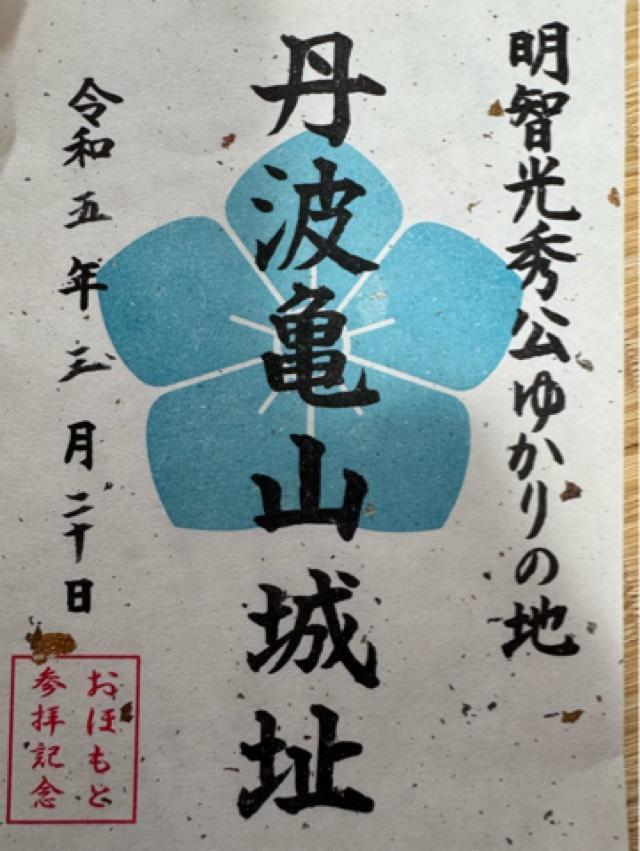 明智光秀公ゆかりの地
丹波亀山城址
令和五年三月二十日
おほもと
参拝記念